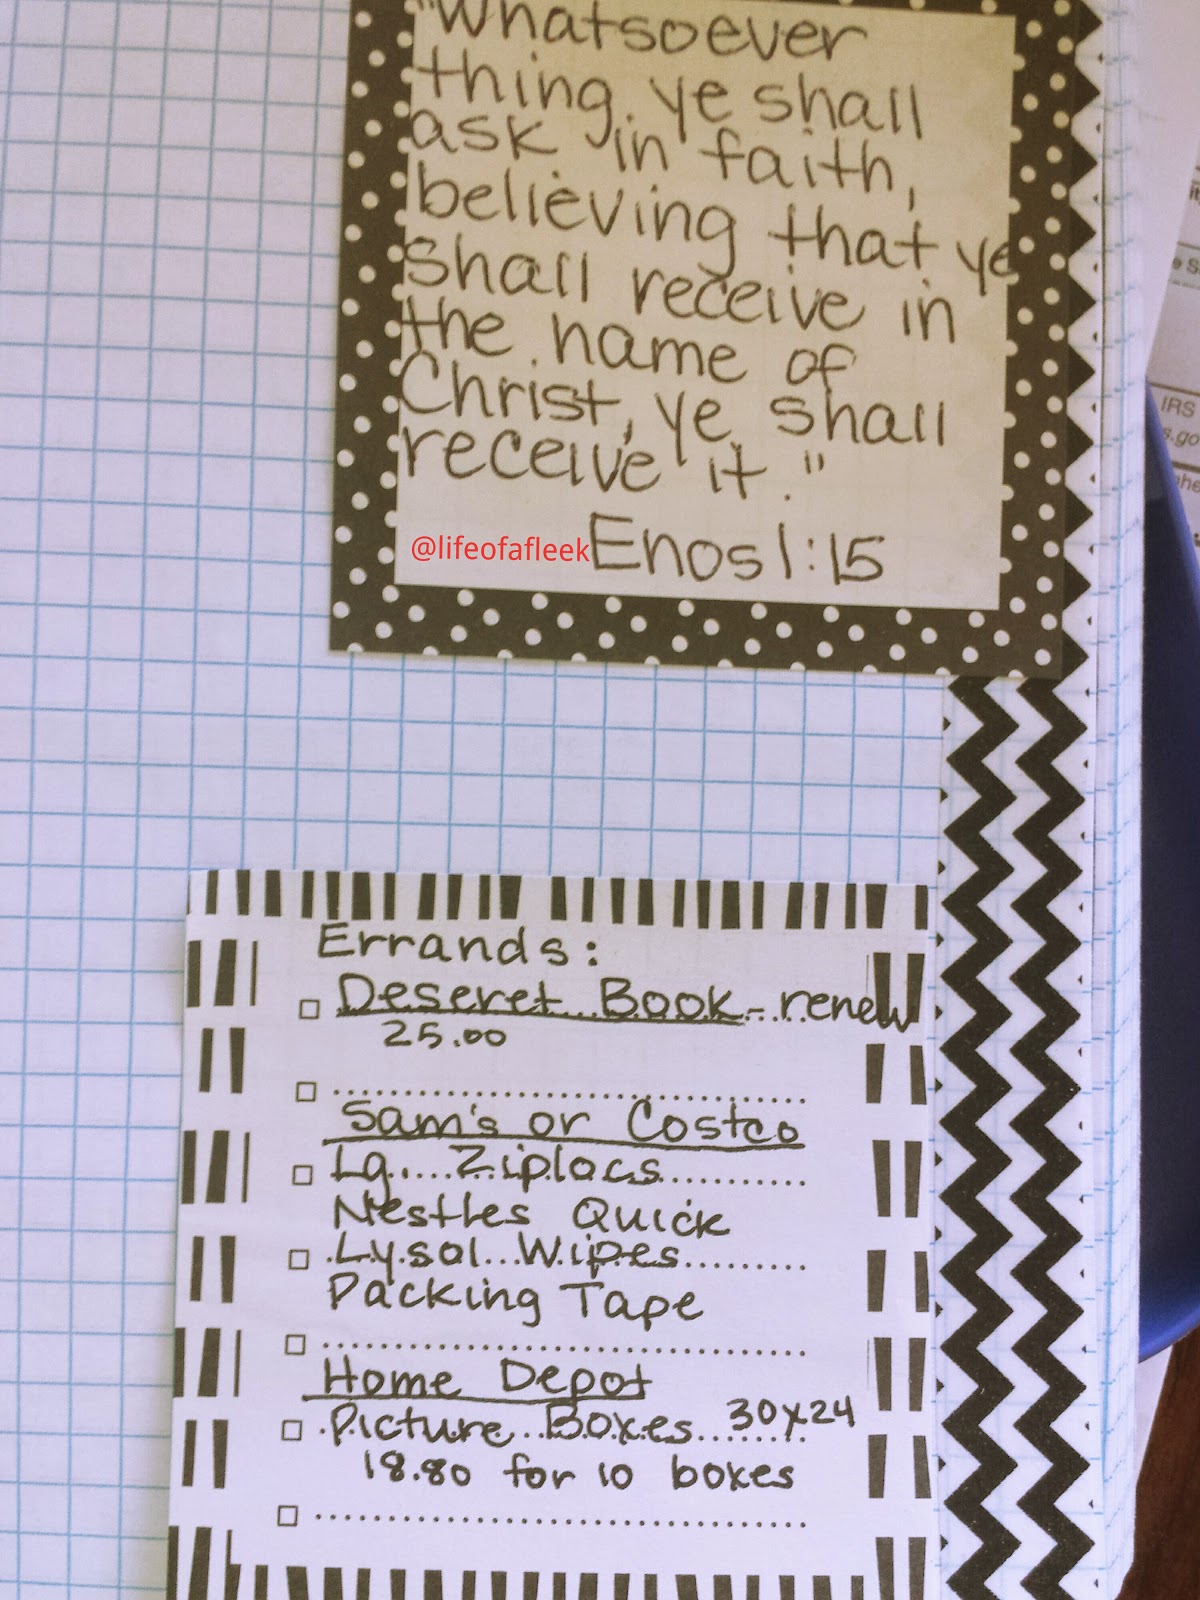 "Whatsoever
thing ye shall
ask in faith,
believing that ye
shall receive in
the name of
Christ, ye shall
receive it."
@lifeofafleek Enos 1:15
IRS
Errands:
Deseret Book - renew
25.00
Sam's or Costco
Lg. Ziplocs
Nestles Quick
Lysol Wipes
Packing Tape
Home Depot
Picture Boxes 30x24
18.80 for 10 boxes